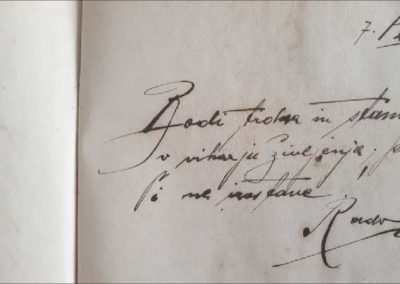 7.
Bodi trdna in stan
v viharju življenja,
Ti ne izostane.
Rado